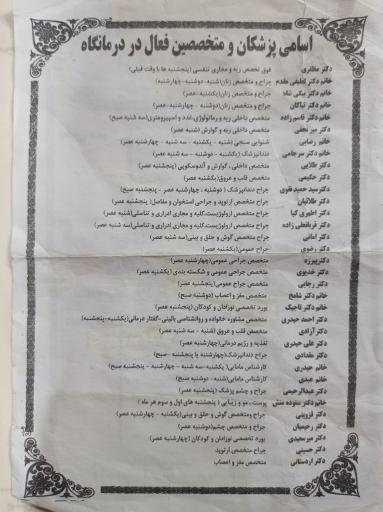 اسامی پزشکان و متخصصین فعال در درمانگاه
دکتر مظفری فوق تخصص ریه و مجاری تنفسی (پنجشنبه ها با وقت قبلی)
خانم دکتر لطیفی مقدم جراح و متخصص زنان(شنبه-دوشنبه-چهارشنبه)
خانم دکتر بیکی شاد جراح و متخصص زنان(یکشنبه عصر)
خانم دکتر نیاکان جراح و متخصص زنان(دوشنبه - چهارشنبه-عصر)
خانم دکتر قاسم زاده متخصص داخلی ریه و رماتولوژی،غدد و اسپیرومتری(سه شنبه صبح)
دکتر میر نجفی متخصص داخلی ریه و گوارش (شنبه عصر)
خانم رضایی شنوایی سنجی (شنبه - یکشنبه - سه شنبه - چهارشنبه عصر)
خانم دکتر سرجامی دندانپزشک (یکشنبه - دوشنبه - سه شنبه عصر)
دکتر طلایی متخصص داخلی ، گوارش و آندوسکوپی (پنجشنبه عصر)
دکتر حکیمی متخصص قلب و عروق(یکشنبه عصر)
دکتر سید حمید تقوی جراح دندانپزشک ( دوشنبه ، چهارشنبه عصر - پنجشنبه صبح)
دکتر طلائیان متخصص ارتوپد و جراحی استخوان و مفاصل( پنجشنبه عصر)
دکتر اطهری کیا جراح متخصص ارولوژیست،کلیه و مجاری ادراری و تناسلی(شنبه عصر)
دکتر قربانعلی زاده جراح متخصص ارولوژیست،کلیه و مجاری ادراری و تناسلی(سه شنبه عصر)
دکتر امانی جراح و متخصص گوش و حلق و بینی(سه شنبه عصر)
دکتر رضوی جراح عمومی(یکشنبه عصر)
دکتر متخصص جراحی عمومی(چهارشنبه عصر)
دکتر خدیوی متخصص جراحی عمومی و شکسته بندی (یکشنبه عصر)
دکتر رجایی متخصص جراح عمومی(پنجشنبه عصر)
خانم دکتر شامخ متخصص مغز و اعصاب (دوشنبه صبح)
خانم دکتر تاجیک بورد تخصصی نوزادان و کودکان (پنجشنبه عصر)
دکتر احمد حیدری متخصص مشاوره خانواده و روانشناسی بالینی-گفتار درمانی(یکشنبه-پنجشنبه)
دکتر آزادی متخصص قلب و عروق (شنبه - سه شنبه عصر)
دکتر علی حیدری تغذیه و رژیم درمانی(چهارشنبه عصر)
دکتر مقدادی جراح دندانپزشک(چهارشنبه یا پنجشنبه -صبح)
خانم حیدری کارشناس مامایی( یکشنبه-سه شنبه - چهارشنبه - پنجشنبه صبح)
خانم عبدی کارشناس مامایی(شنبه- دوشنبه صبح)
دکتر عبدالرحیمی جراح و چشم پزشک (پنجشنبه عصر)
خانم دکتر ستوده منش پوست ، مو و زیبایی ( پنجشنبه های اول و سوم هر ماه )
دکتر قزوینی جراح و متخصص گوش و حلق و بینی(یکشنبه - چهارشنبه عصر)
دکتر رحیمیان جراح و متخصص چشم(دوشنبه عصر)
دکتر میرسعیدی بورد تخصصی نوزادان و کودکان (چهارشنبه عصر)
دکتر حسینی جراح متخصص ارتوپد
دکتر اردستانی متخصص مغز و اعصاب